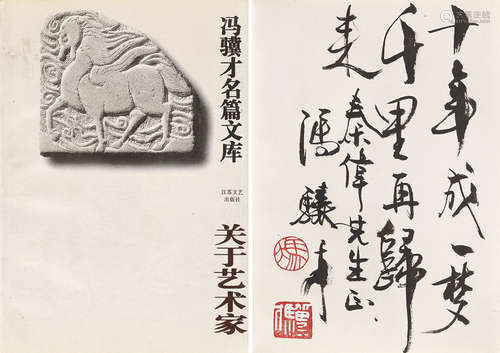 冯骥才名篇文库
江苏文艺
出版社
关于艺术家
十年成一梦
千里再歸
来
秦偉先生正
馮驥才